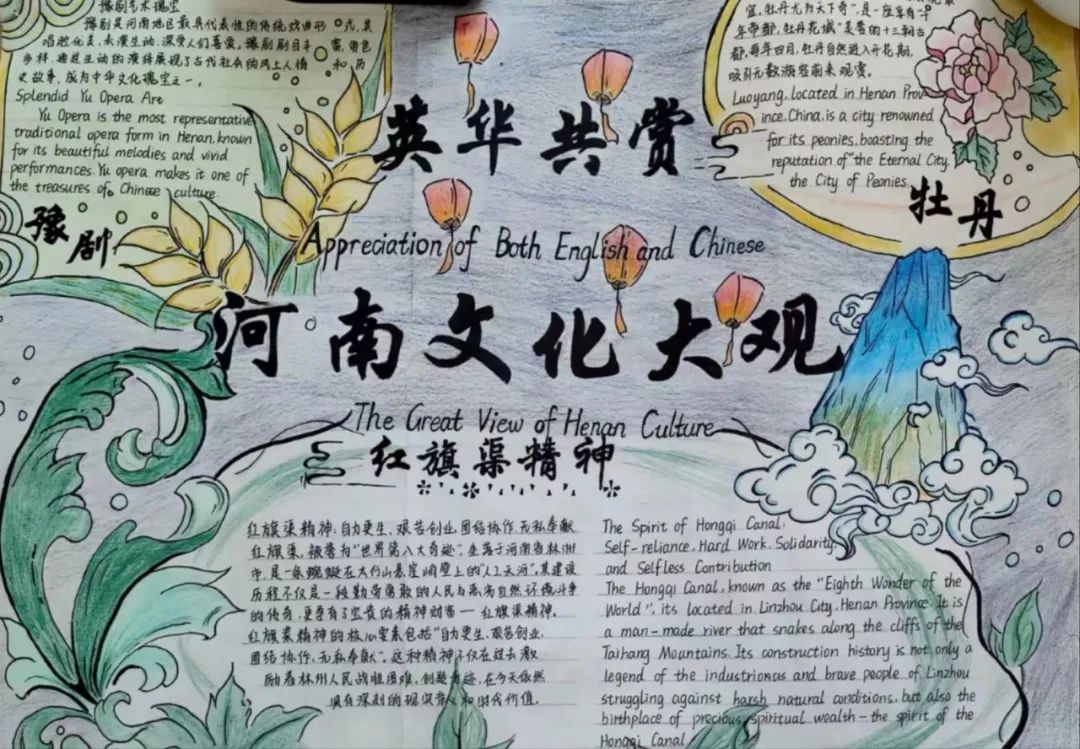 豫剧艺术瑰宝
豫剧是河南地区最具代表性的传统戏曲形式,其
唱腔优美,表演生动,深受人们喜爱。豫剧剧目丰富,角色
多样,通过生动的演绎展现了古代社会的风土人情和历
史故事,成为中华文化瑰宝之一。
Splendid Yu Opera Art
Yu Opera is the most representative
traditional opera form in Henan, known
for its beautiful melodies and vivid
performances. Yu opera makes it one of
the treasures of Chinese culture.
豫剧
英华共赏
Appreciation of Both English and Chinese
河南文化大观
The Great View of Henan Culture
宜,牡丹尤为天下奇",是一座享有"千
年帝都,牡丹花城"美誉的十三朝古
都,每年四月,牡丹自然进入开花期,
吸引无数游客前来观赏。
Luoyang, located in Henan Prov-
ince, China, is a city renowned
for its peonies, boasting the
reputation of "the Eternal City,
the City of Peonies
牡丹
红旗渠精神
红旗渠精神:自力更生、艰苦创业、团结协作、无私奉献
红旗渠,被誉为"世界第八大奇迹",坐落于河南省林州
市,是一条蜿蜒在太行山悬崖峭壁上的"人工天河",其建设
历程不仅是一段勤劳勇敢的人民与恶劣自然环境斗争
的传奇,更孕育了宝贵的精神财富——红旗渠精神。
红旗渠精神的核心要素包括"自力更生、艰苦创业、
团结协作、无私奉献"。这种精神不仅在过去激
励着林州人民战胜困难,创造奇迹,在今天依然
具有深刻的现实意义和时代价值.
The Spirit of Hongqi Canal:
Self-reliance, Hard Work, Solidarity,
and Selfless Contribution
The Hongqi Canal, known as the "Eighth Wonder of the
World", its located in Linzhou City, Henan Province. It is
a man-made river that snakes along the cliffs of the
Taihang Mountains. Its construction history is not only a
legend of the industrionas and brave people of Linzhou
struggling against harsh natural conditions, but also the
birthplace of precious spiritual wealth - the spirit of the
Hongqi Canal.